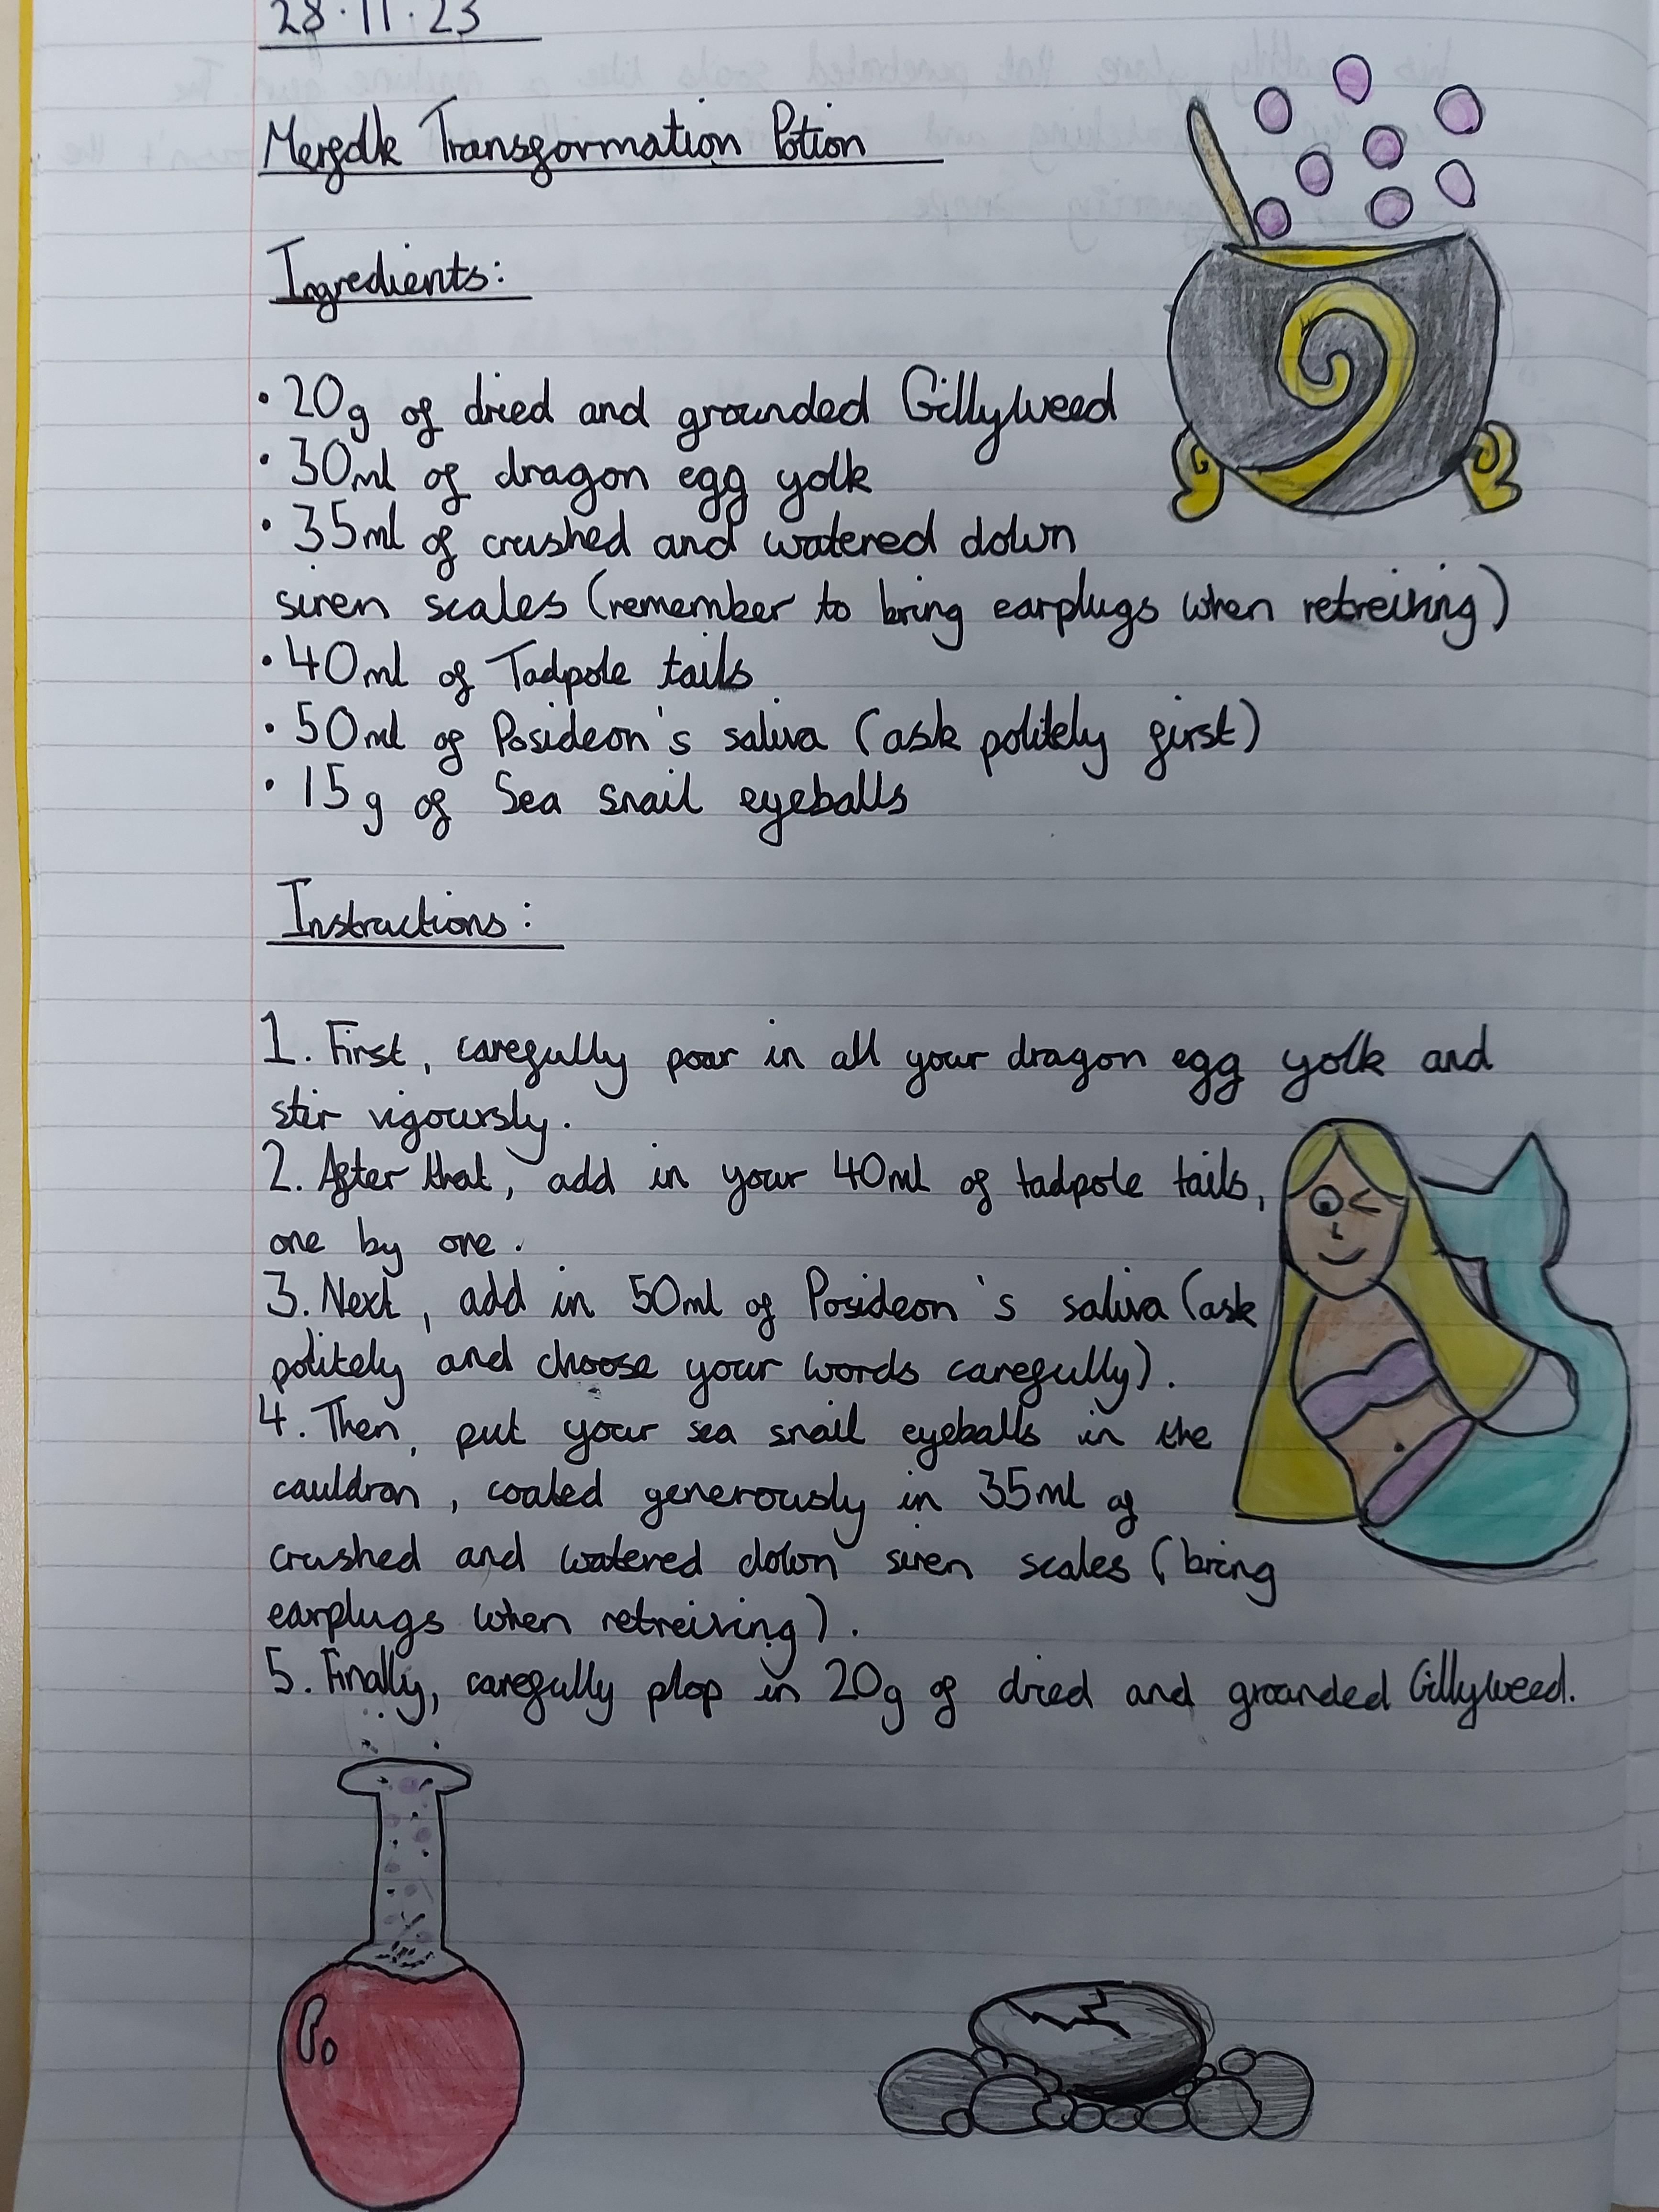 28.11.23
Merfolk Transformation Potion
Ingredients:
• 20g of dried and grounded Gillyweed
• 30ml of dragon egg yolk
• 35ml of crushed and watered down
siren scales (remember to bring earplugs when retreiving)
• 40ml of Tadpole tails
• 50ml of Posideon's saliva (ask politely first)
• 15g of Sea snail eyeballs
Instructions:
1. First, carefully pour in all your dragon egg yolk and
stir vigoursly.
2. After that, add in your 40ml of tadpole tails,
one by one.
3. Next, add in 50ml of Posideon's saliva (ask
politely and choose your words carefully).
4. Then, put your sea snail eyeballs in the
cauldron, coated generously in 35ml of
crushed and watered down siren scales (bring
earplugs when retreiving).
5. Finally, carefully plop in 20g of dried and grounded Gillyweed.